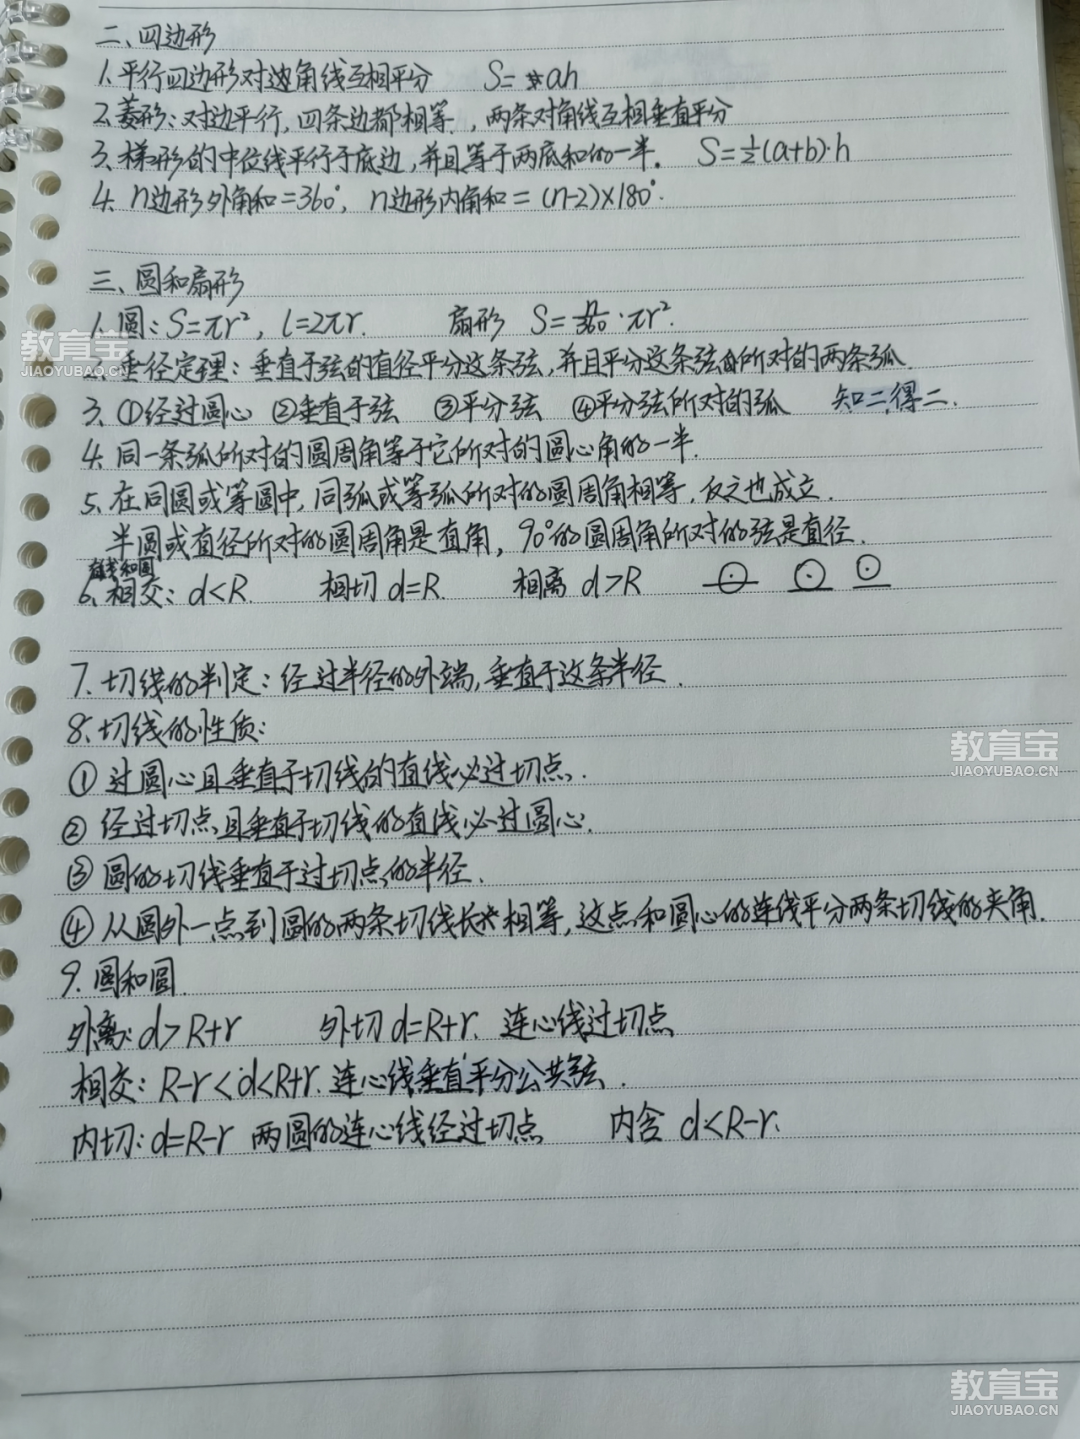 二、四边形
1.平行四边形对边角线互相平分 S=ah
2.菱形:对边平行,四条边都相等,两条对角线互相垂直平分
3.梯形的中位线平行于底边,并且等于两底和的一半. S=½(a+b)·h
4.n边形外角和=360°,n边形内角和=(n-2)×180°.
三、圆和扇形
1.圆:S=πr²,l=2πr. 扇形 S=n/360·πr².
2.垂径定理:垂直于弦的直径平分这条弦,并且平分这条弦所对的两条弧.
3.①经过圆心 ②垂直于弦 ③平分弦 ④平分弦所对的弧 知二得二.
4.同一条弧所对的圆周角等于它所对的圆心角的一半.
5.在同圆或等圆中,同弧或等弧所对的圆周角相等,反之也成立.
半圆或直径所对的圆周角是直角,90°的圆周角所对的弦是直径.
和圆
6.相交:d<R. 相切 d=R. 相离 d>R
7.切线的判定:经过半径的外端,垂直于这条半径.
8.切线的性质:
①过圆心且垂直于切线的直线必过切点.
②经过切点且垂直于切线的直线必过圆心.
③圆的切线垂直于过切点的半径.
④从圆外一点到圆的两条切线长相等,这点和圆心的连线平分两条切线的夹角.
9.圆和圆.
外离:d>R+r 外切 d=R+r. 连心线过切点
相交:R-r<d<R+r.连心线垂直平分公共弦.
内切:d=R-r 两圆的连心线经过切点 内含 d<R-r.
教育宝
JIAOYUBAO.CN
教育宝
JIAOYUBAO.CN
教育宝
JIAOYUBAO.CN